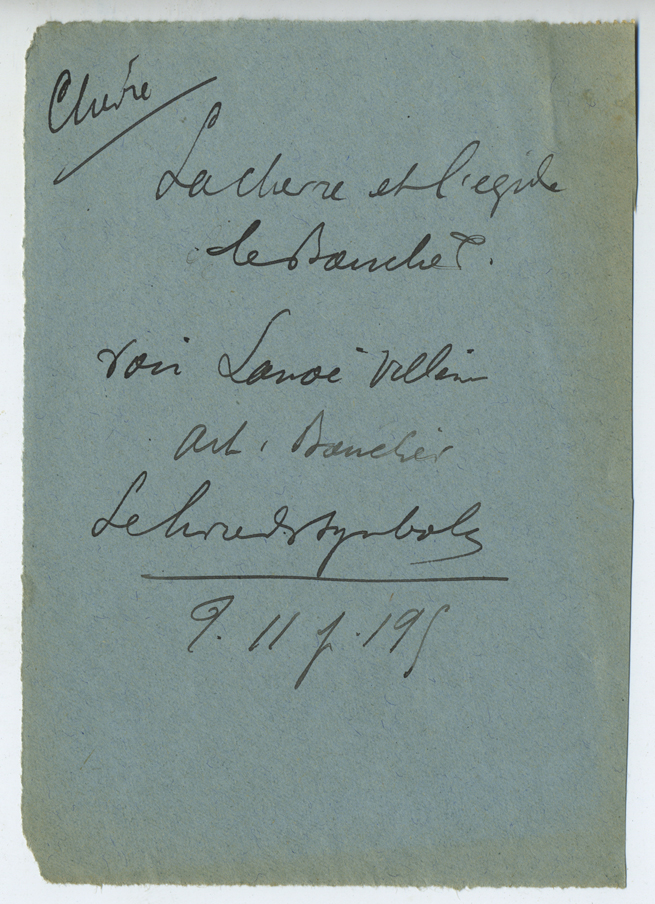 Chèvre
La chevre et l'egide
le Bouclier.
voir Lanoë Villène
Art. Bouclier
Le livre des symboles
P. 11 f. 195